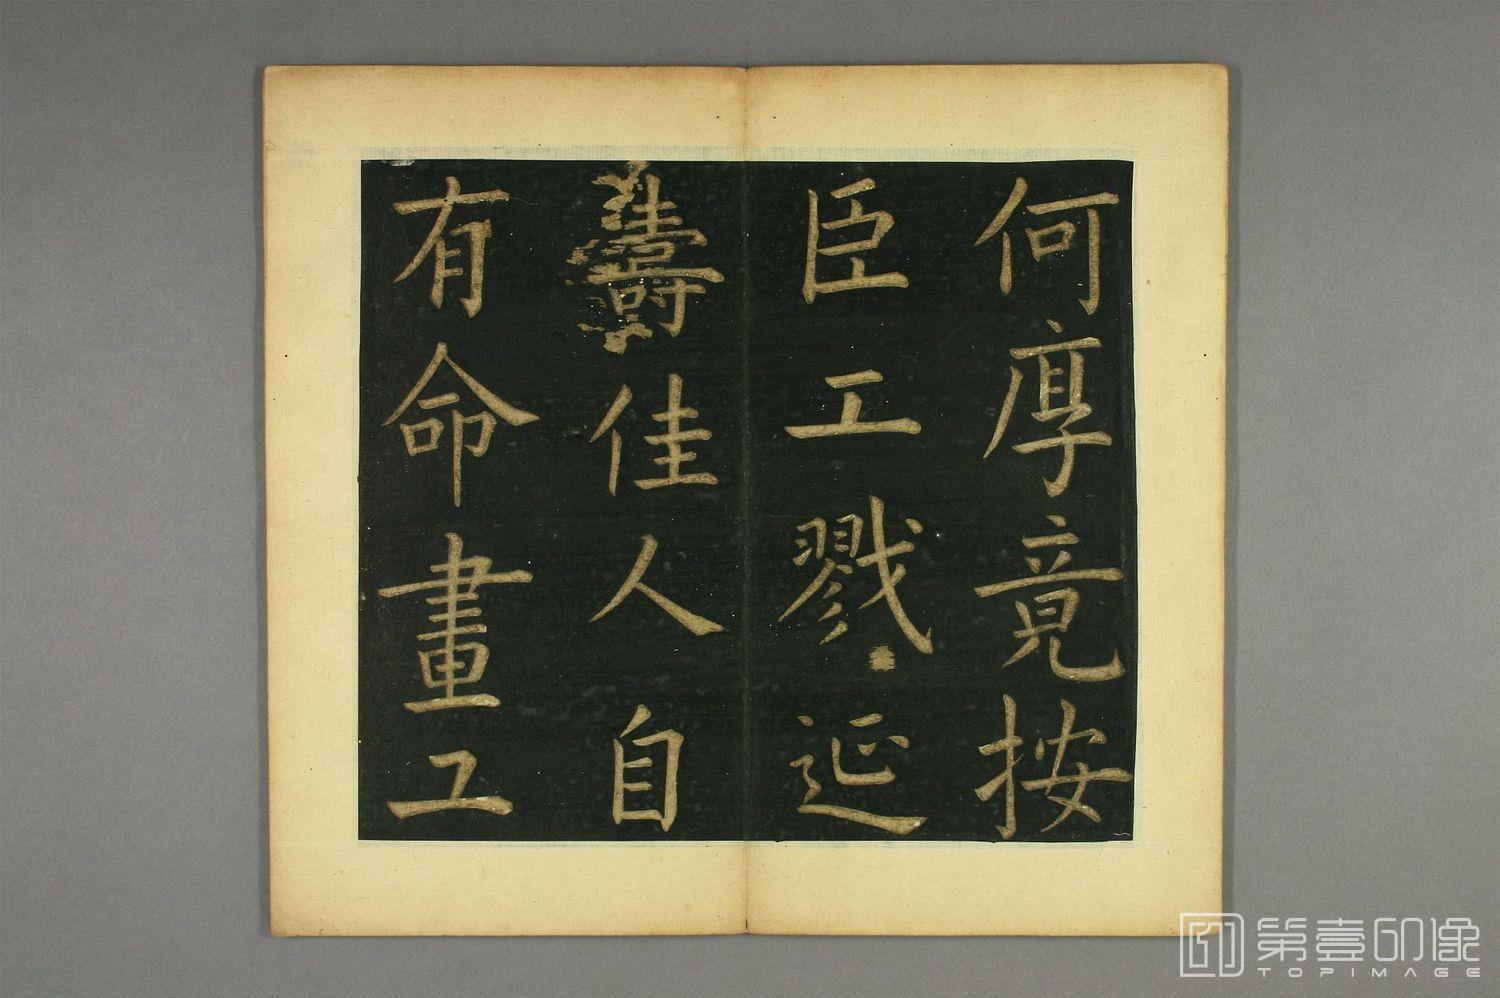 何厚竟按
臣工戮延
壽佳人自
有命畫工
第壹印像
TOPIMAGE